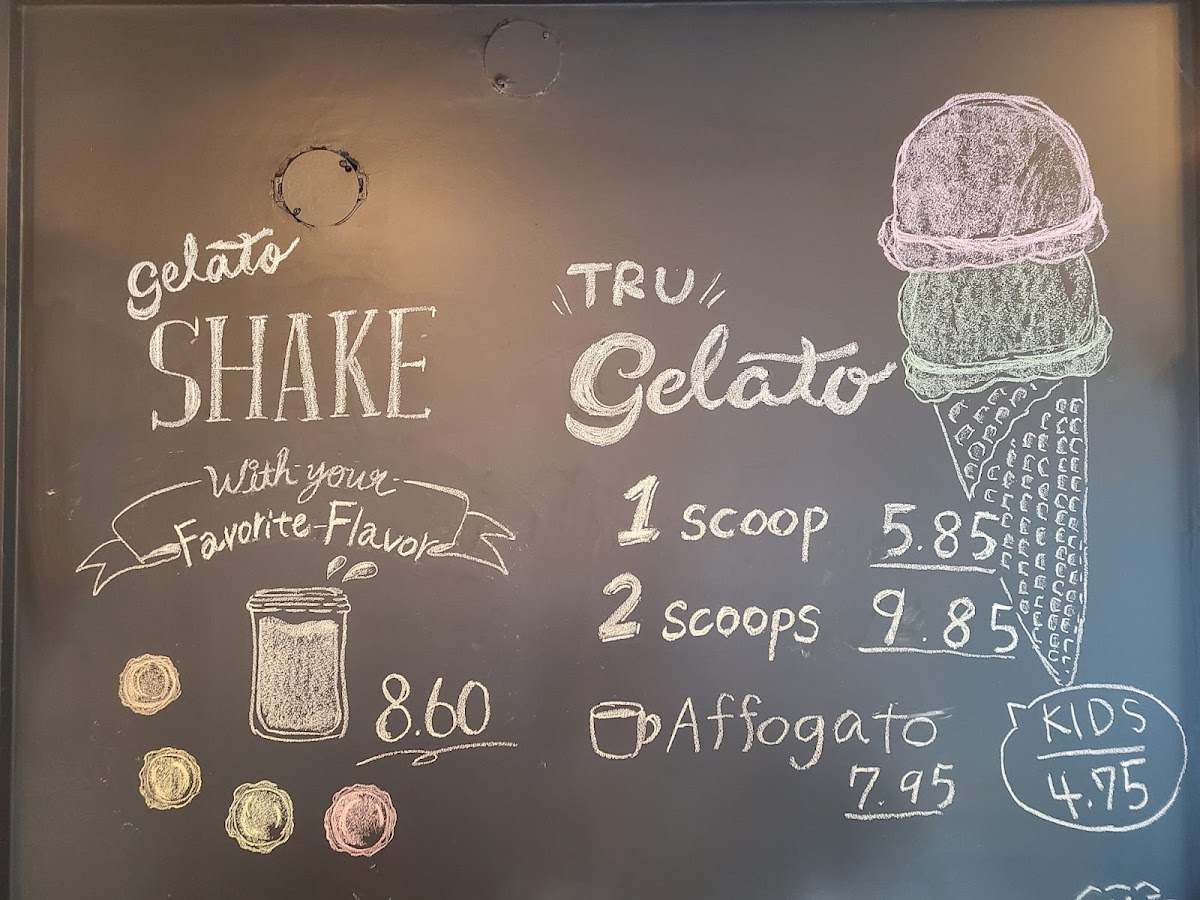 gelato
SHAKE
With your
Favorite Flavor
8.60
TRU
Gelato
1 scoop 5.85
2 scoops 9.85
Affogato
7.95
KIDS
4.75